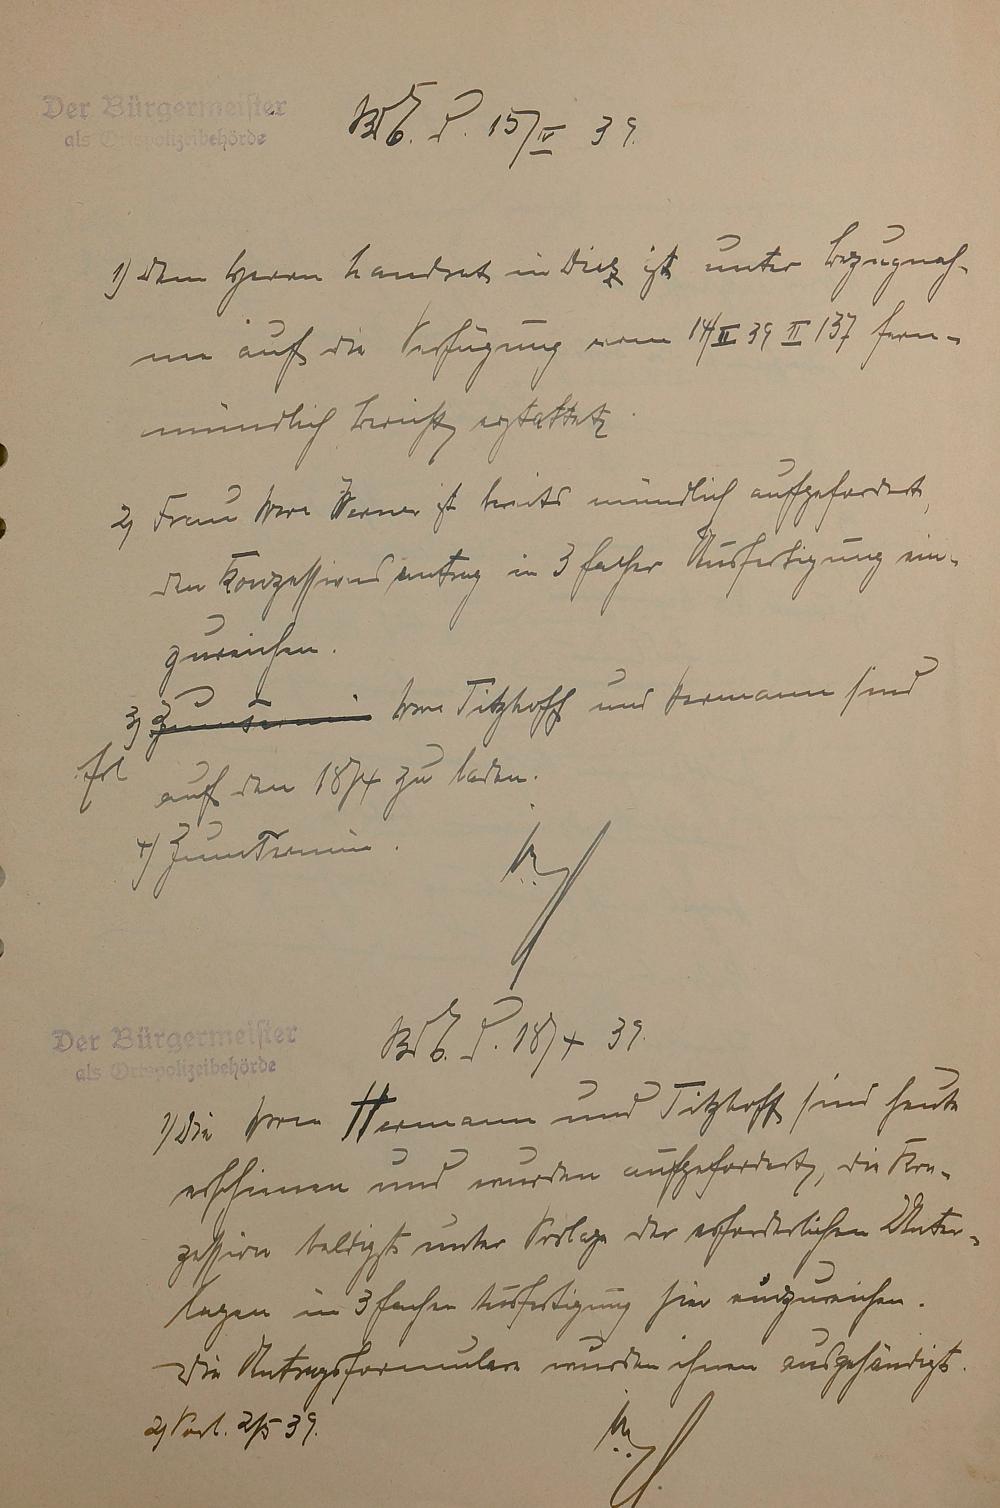 Der Bürgermeister
als Ortspolizeibehörde
15/IV 39.
1) Dem Herrn Landrat in Diez ist unter Bezugnah-
me auf die Verfügung vom 14/II 39 II 137 fern-
mündlich Bericht erstattet.
2) Frau Werner ist bereits mündlich aufgefordert,
den Konzessionsantrag in 3 facher Ausfertigung ein-
zureichen.
3) Zum Termin Titzhoff und Hermann sind
auf den 18/4 zu laden.
4) Zum Termin.
Der Bürgermeister
als Ortspolizeibehörde
18/4 39.
1) Die Herren Hermann und Titzhoff sind heute
erschienen und wurden aufgefordert, die Kon-
zession baldigst unter Vorlage der erforderlichen Unter-
lagen in 3 facher Ausfertigung hier einzureichen.
Die Antragsformulare wurden ihnen ausgehändigt.
2) Vorl. 2/5 39.